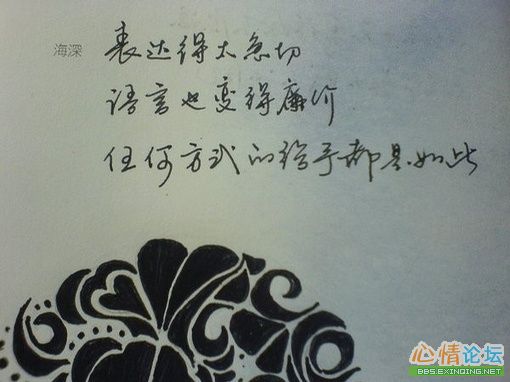 海深
表达得太急切
语言也变得廉价
任何方式的给予都是如此
心情论坛
BBS.EXINQING.NET